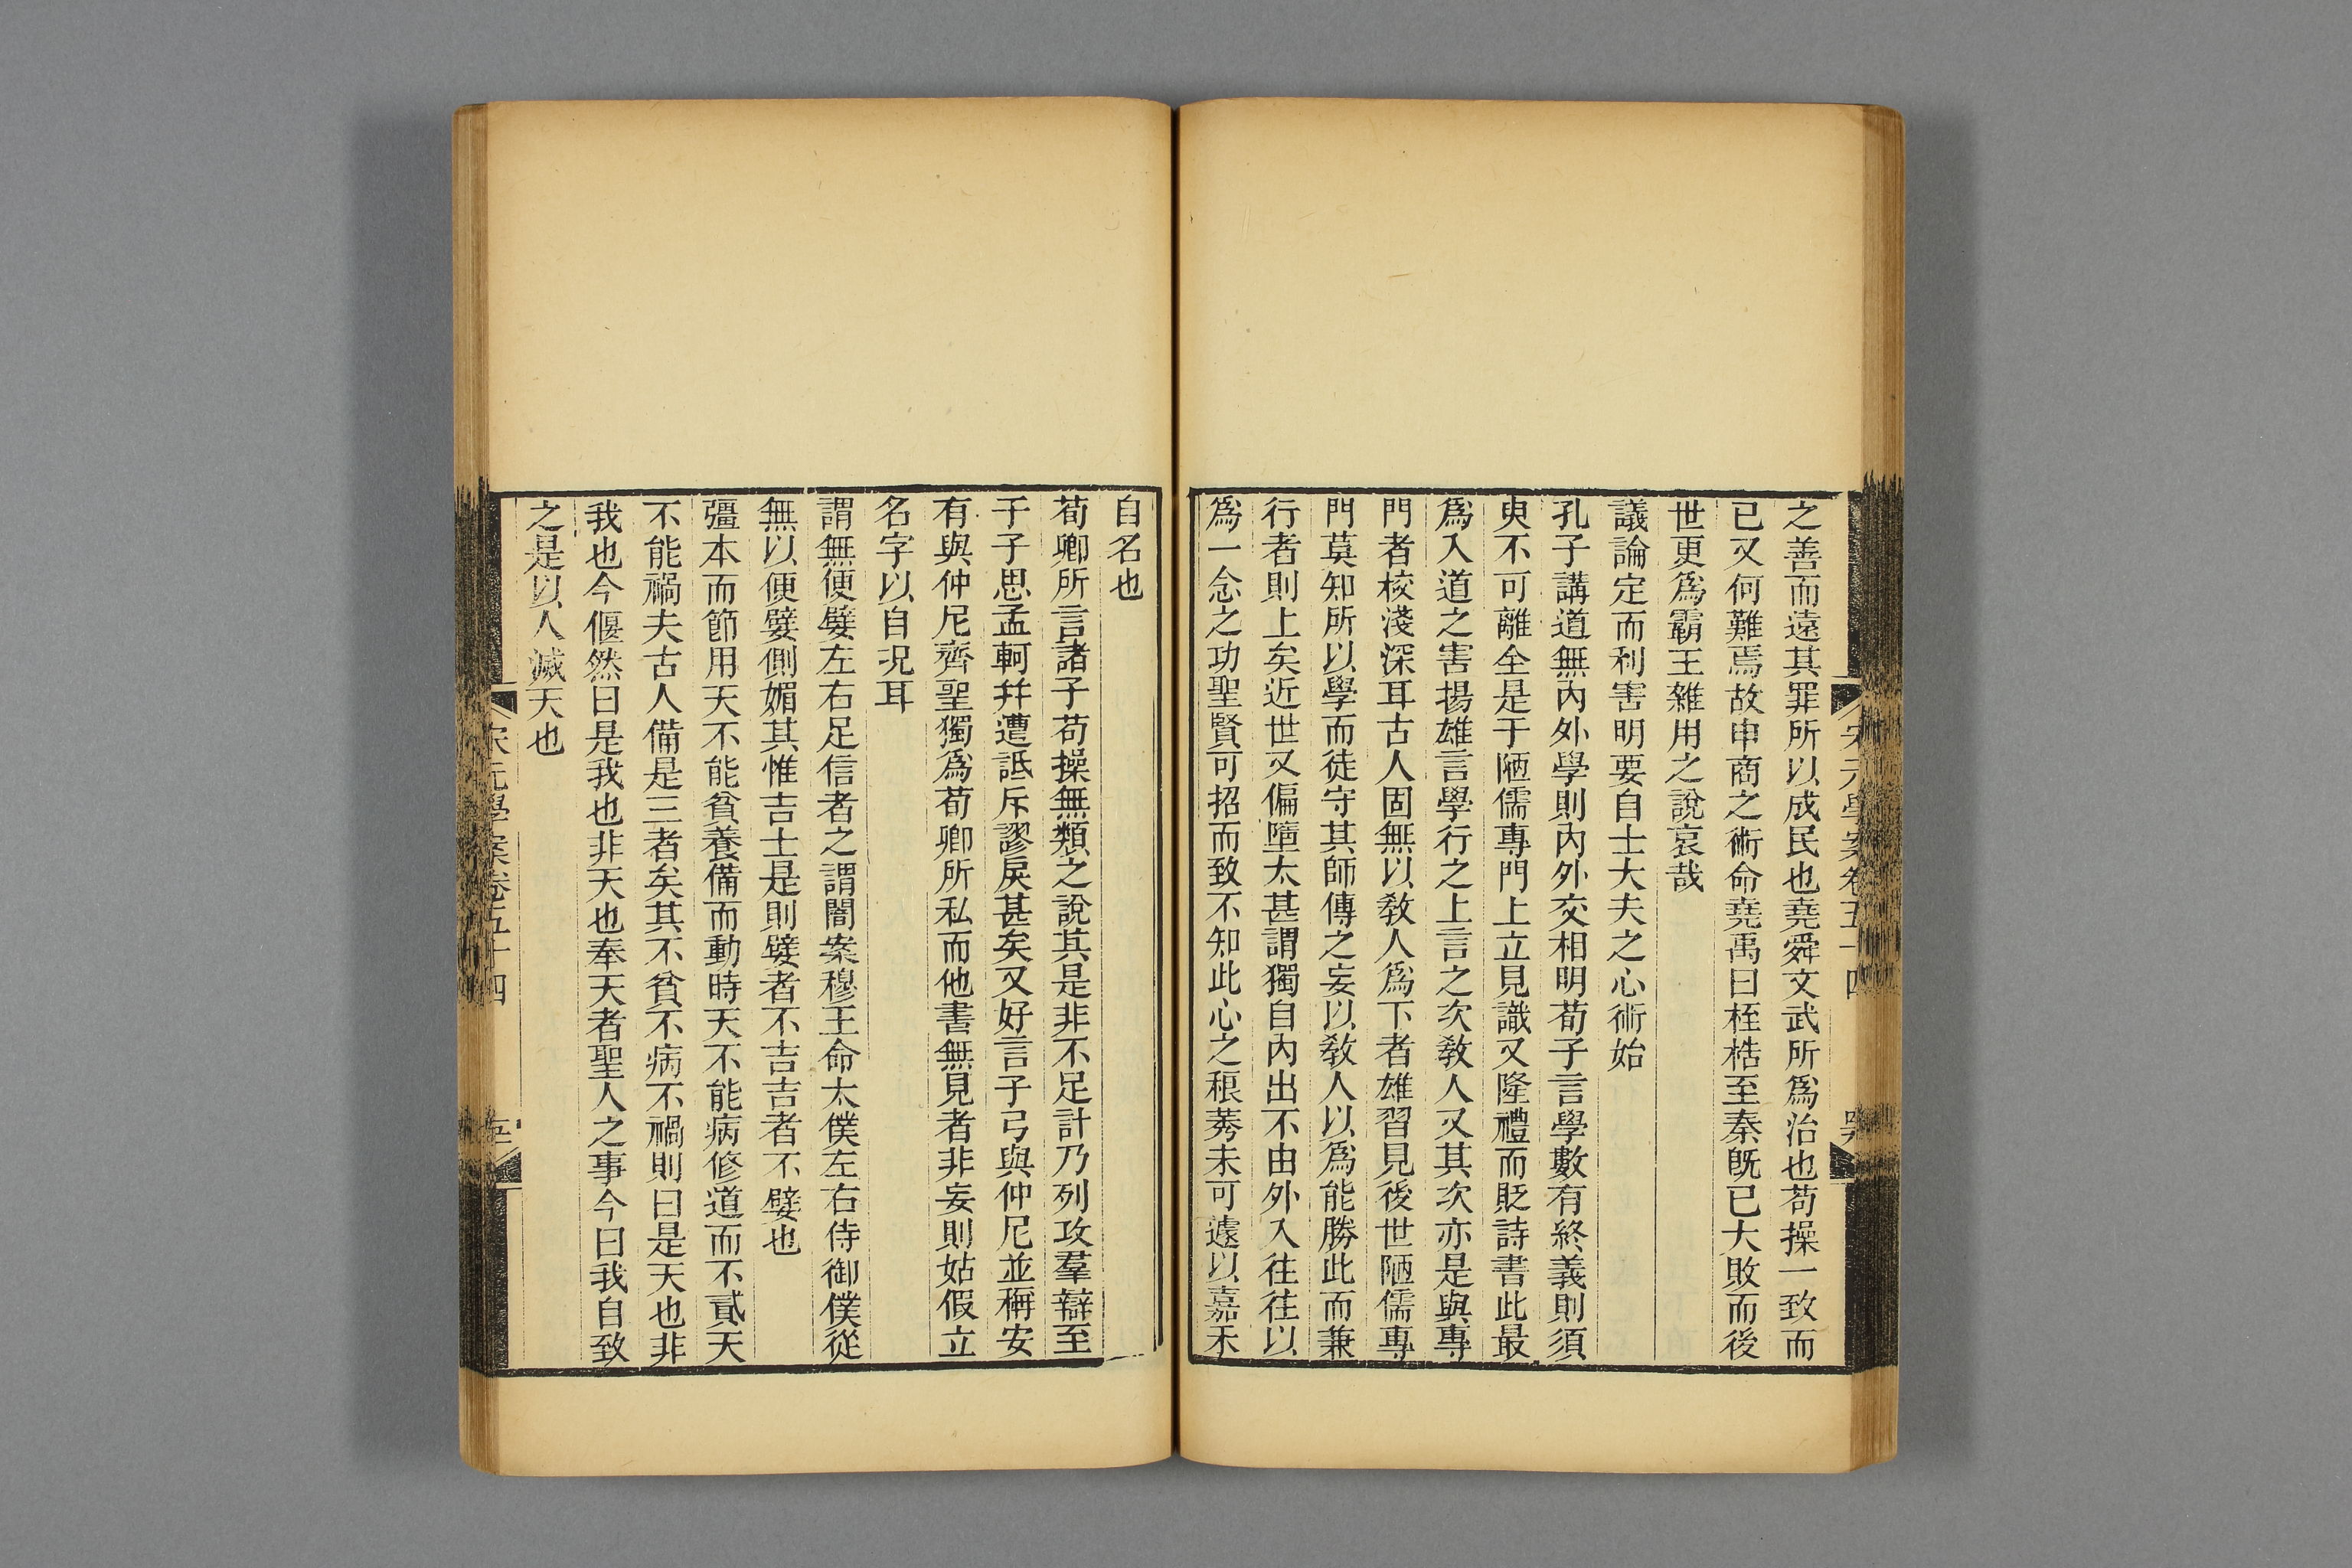 之善而遠其罪所以成民也堯舜文武所爲治也苟操一致而
已又何難焉故申商之術命堯禹曰桎梏至秦旣已大敗而後
世更爲霸王雜用之說哀哉
議論定而利害明要自士大夫之心術始
孔子講道無內外學則內外交相明荀子言學數有終義則須
臾不可離全是于陋儒專門上立見識又隆禮而貶詩書此最
爲入道之害揚雄言學行之上言之次敎人又其次亦是與專
門者校淺深耳古人固無以敎人爲下者雄習見後世陋儒專
門莫知所以學而徒守其師傳之妄以敎人以爲能勝此而兼
行者則上矣近世又偏墮太甚謂獨自內出不由外入往往以
爲一念之功聖賢可招而致不知此心之稂莠未可遽以嘉禾
自名也
荀卿所言諸子苟操無類之說其是非不足計乃列攻羣辯至
于子思孟軻幷遭詆斥謬戾甚矣又好言子弓與仲尼並稱安
有與仲尼齊聖獨爲荀卿所私而他書無見者非妄則姑假立
名字以自況耳
謂無便嬖左右足信者之謂闇案穆王命太僕左右侍御僕從
無以便嬖側媚其惟吉士是則嬖者不吉吉者不嬖也
彊本而節用天不能貧養備而動時天不能病修道而不貳天
不能禍夫古人備是三者矣其不貧不病不禍則曰是天也非
我也今偃然曰是我也非天也奉天者聖人之事今曰我自致
之是以人滅天也
宋元學案卷五十四
宋元學案卷五十四